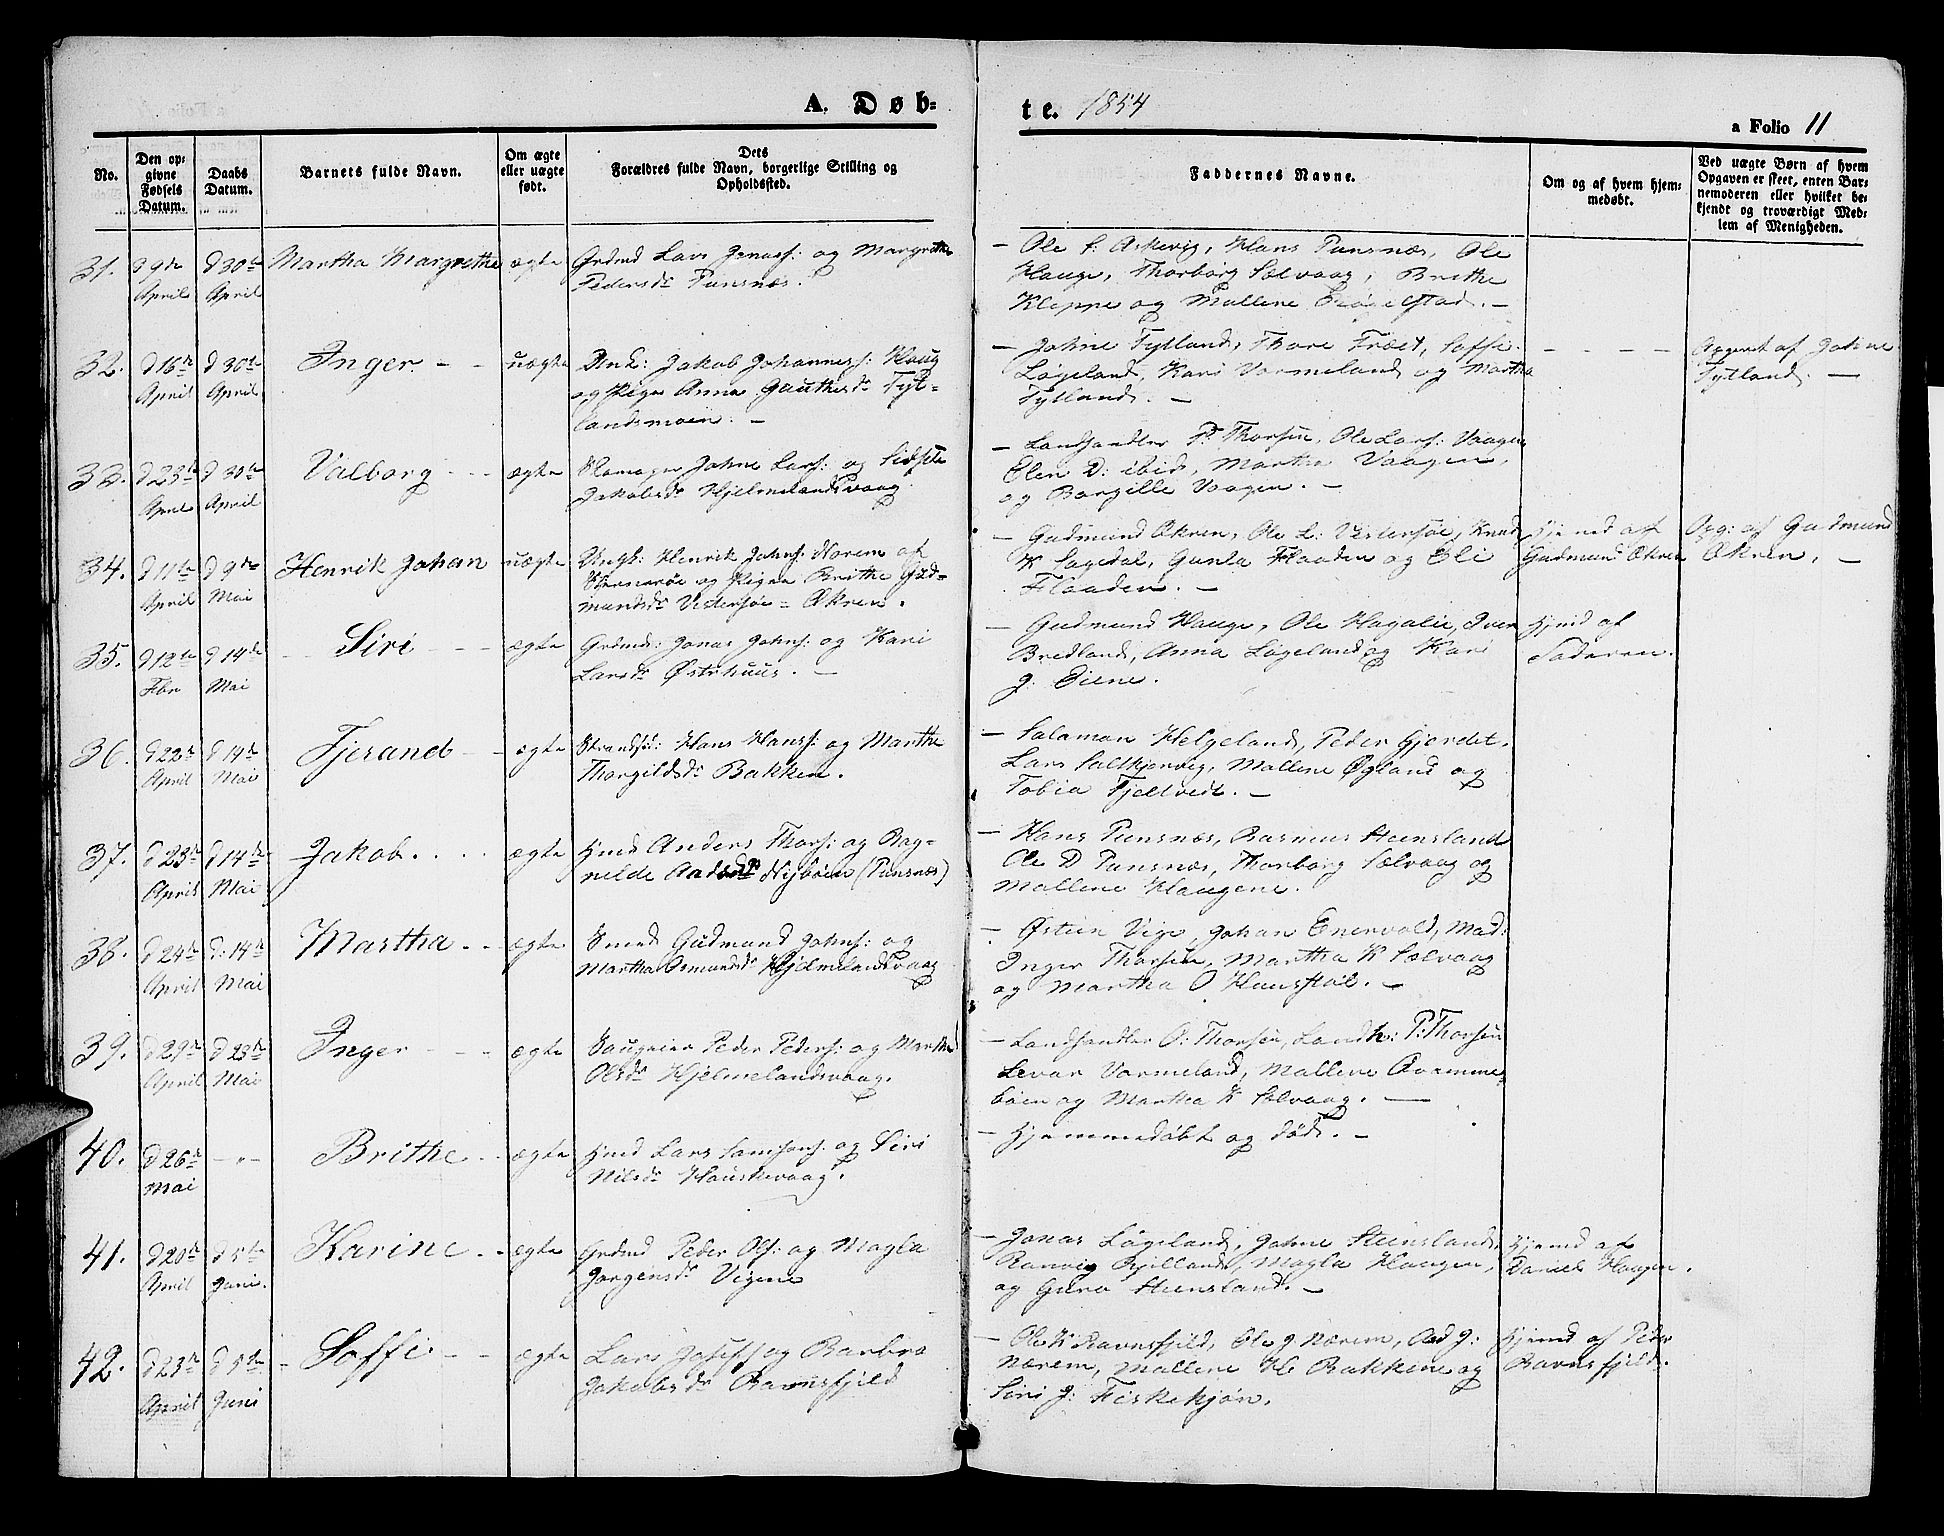 A. Døb-
te. 1854
a Folio 11
No.
Den op-
givne
Fødsels
Datum.
Daabs
Datum.
Barnets fulde Navn.
Om ægte
eller uægte
født.
Dets
Forældres fulde Navn, borgerlige Stilling og
Opholdssted.
Faddernes Navne.
Om og af hvem hjem-
medøbt.
Ved uægte Børn af hvem
Opgaven er skeet, enten Bar-
nemoderen eller hvilket be-
kjendt og troværdigt Med-
lem af Menigheden.
31. d 9de April d 30te April Martha Margrethe ægte Grdmd Lars Jonass: og Margrethe
Pedersdr Punsnæs.
– Ole Askevig, Hans Punsnæs, Ole
Hauge, Thorborg Sælvaag, Brithe
Kleppe og Mallene
32. d 16de April d 30te April Inger – – uægte Unk: Jakob Johanness: Haug
og Pige Anna Gauthesdr Tyt-
landsmoen. –
– Johne Tytland, Thore Fræet, Soffi
Løgeland, Kari Vormeland og Martha
Tytland. –
– – – –
Opgivet af Johne
Tytland. –
33. d 23de April d 30te April Valborg – – ægte Johne Lars: og Sidsele
Jakobsdr Hjelmelandsvaag.
– Landhandler P. Thorsen, Ole Lars: Vaagen
Elen D: ibid, Martha Vaagen,
og Borgille Vaagen. –
34. d 11te April d 9de Mai Henrik Johan uægte Ungk: Henrik Johns: Norem af
og Pigen Brithe Gud-
mundsdr Vestersøe – Økren.
– Gudmund Økren, Ole L: Vestersøe, Knud
K Sagedal, Gunla Flaaden og Eli
Flaaden. –
Hjemed af
Gudmund Økren
Opg: af Gudmund
Økren, –
35. d 12te Fbr d 14de Mai – Siri – – – ægte Grdmd: Jonas Johns: og Kari
Larsdr Østrhuus. –
– Gudmund Hauge, Ole Hagalie, Iver
Bredland, Anna Løgeland og Kari
J. Eiene.
Hjmd af
Faderen.
36. d 22de April d 14de Mai Tjerand – ægte Strands: Hans Hanss: og Marthe
Thorgildsdr Bakken.
– Salamon Helgeland, Peder Gjerdet,
Lars Mallene Øgland og
Tobia Tjeltveit. –
37. d 23de April d 14de Mai Jakob. . . . ægte Hmd Anders Thors: og Rag-
nilde Aadsdr Nybøen (Punsnæs)
– Hans Punsnæs, Rasmus Steensland
Ole D Punsnæs, Thorborg Sælvaag og
Mallene Haugene.
38. d 24de April d: 14de Mai Martha. . . ægte Smed Gudmund Johns: og
Martha Osmundsdr Hjelmelandsvaag
– Østein Vige, Johan Enervold, Mad:
Inger Thorsen, Martha K Sælvaag
og Martha O Hauststøl. –
39. d 29de April d 23de Mai Inger – – – ægte Peder Peders: og Marthe
Olsdr Hjelmelandsvaag.
– Landhandler O: Thorsen, Landh: P: Thorsen
Sevar Vormeland, Mallene
bøen og Martha K Sælvaag. –
40. d 26de Mai – " – Brithe – – ægte Hmd Lars Samsons: og Siri
Nilsdr
– Hjemmedøbt og død. –
41. d 20de April d 5te Juni. Karine – – ægte Grdmd Peder Ols: og Magla
Jorgensdr Vigene
– Jonas Løgeland, Johne Steensland,
Ranvig Magla Haugen,
og Guro Steensland. –
Hjemd af
Daniel Haugen.
42. d 23de April d 5te Juni – Soffi – – ægte Lars Josefs og Barbro
Jakobsdr Ravnsfjeld
– Ole K Ravnsfjeld, Ole J: Nærem, Aad J:
Nærem, Mallene H: Bakken og
Siri J: Fiskekjøn.
Hjemd af Peder
Ravnsfjeld.